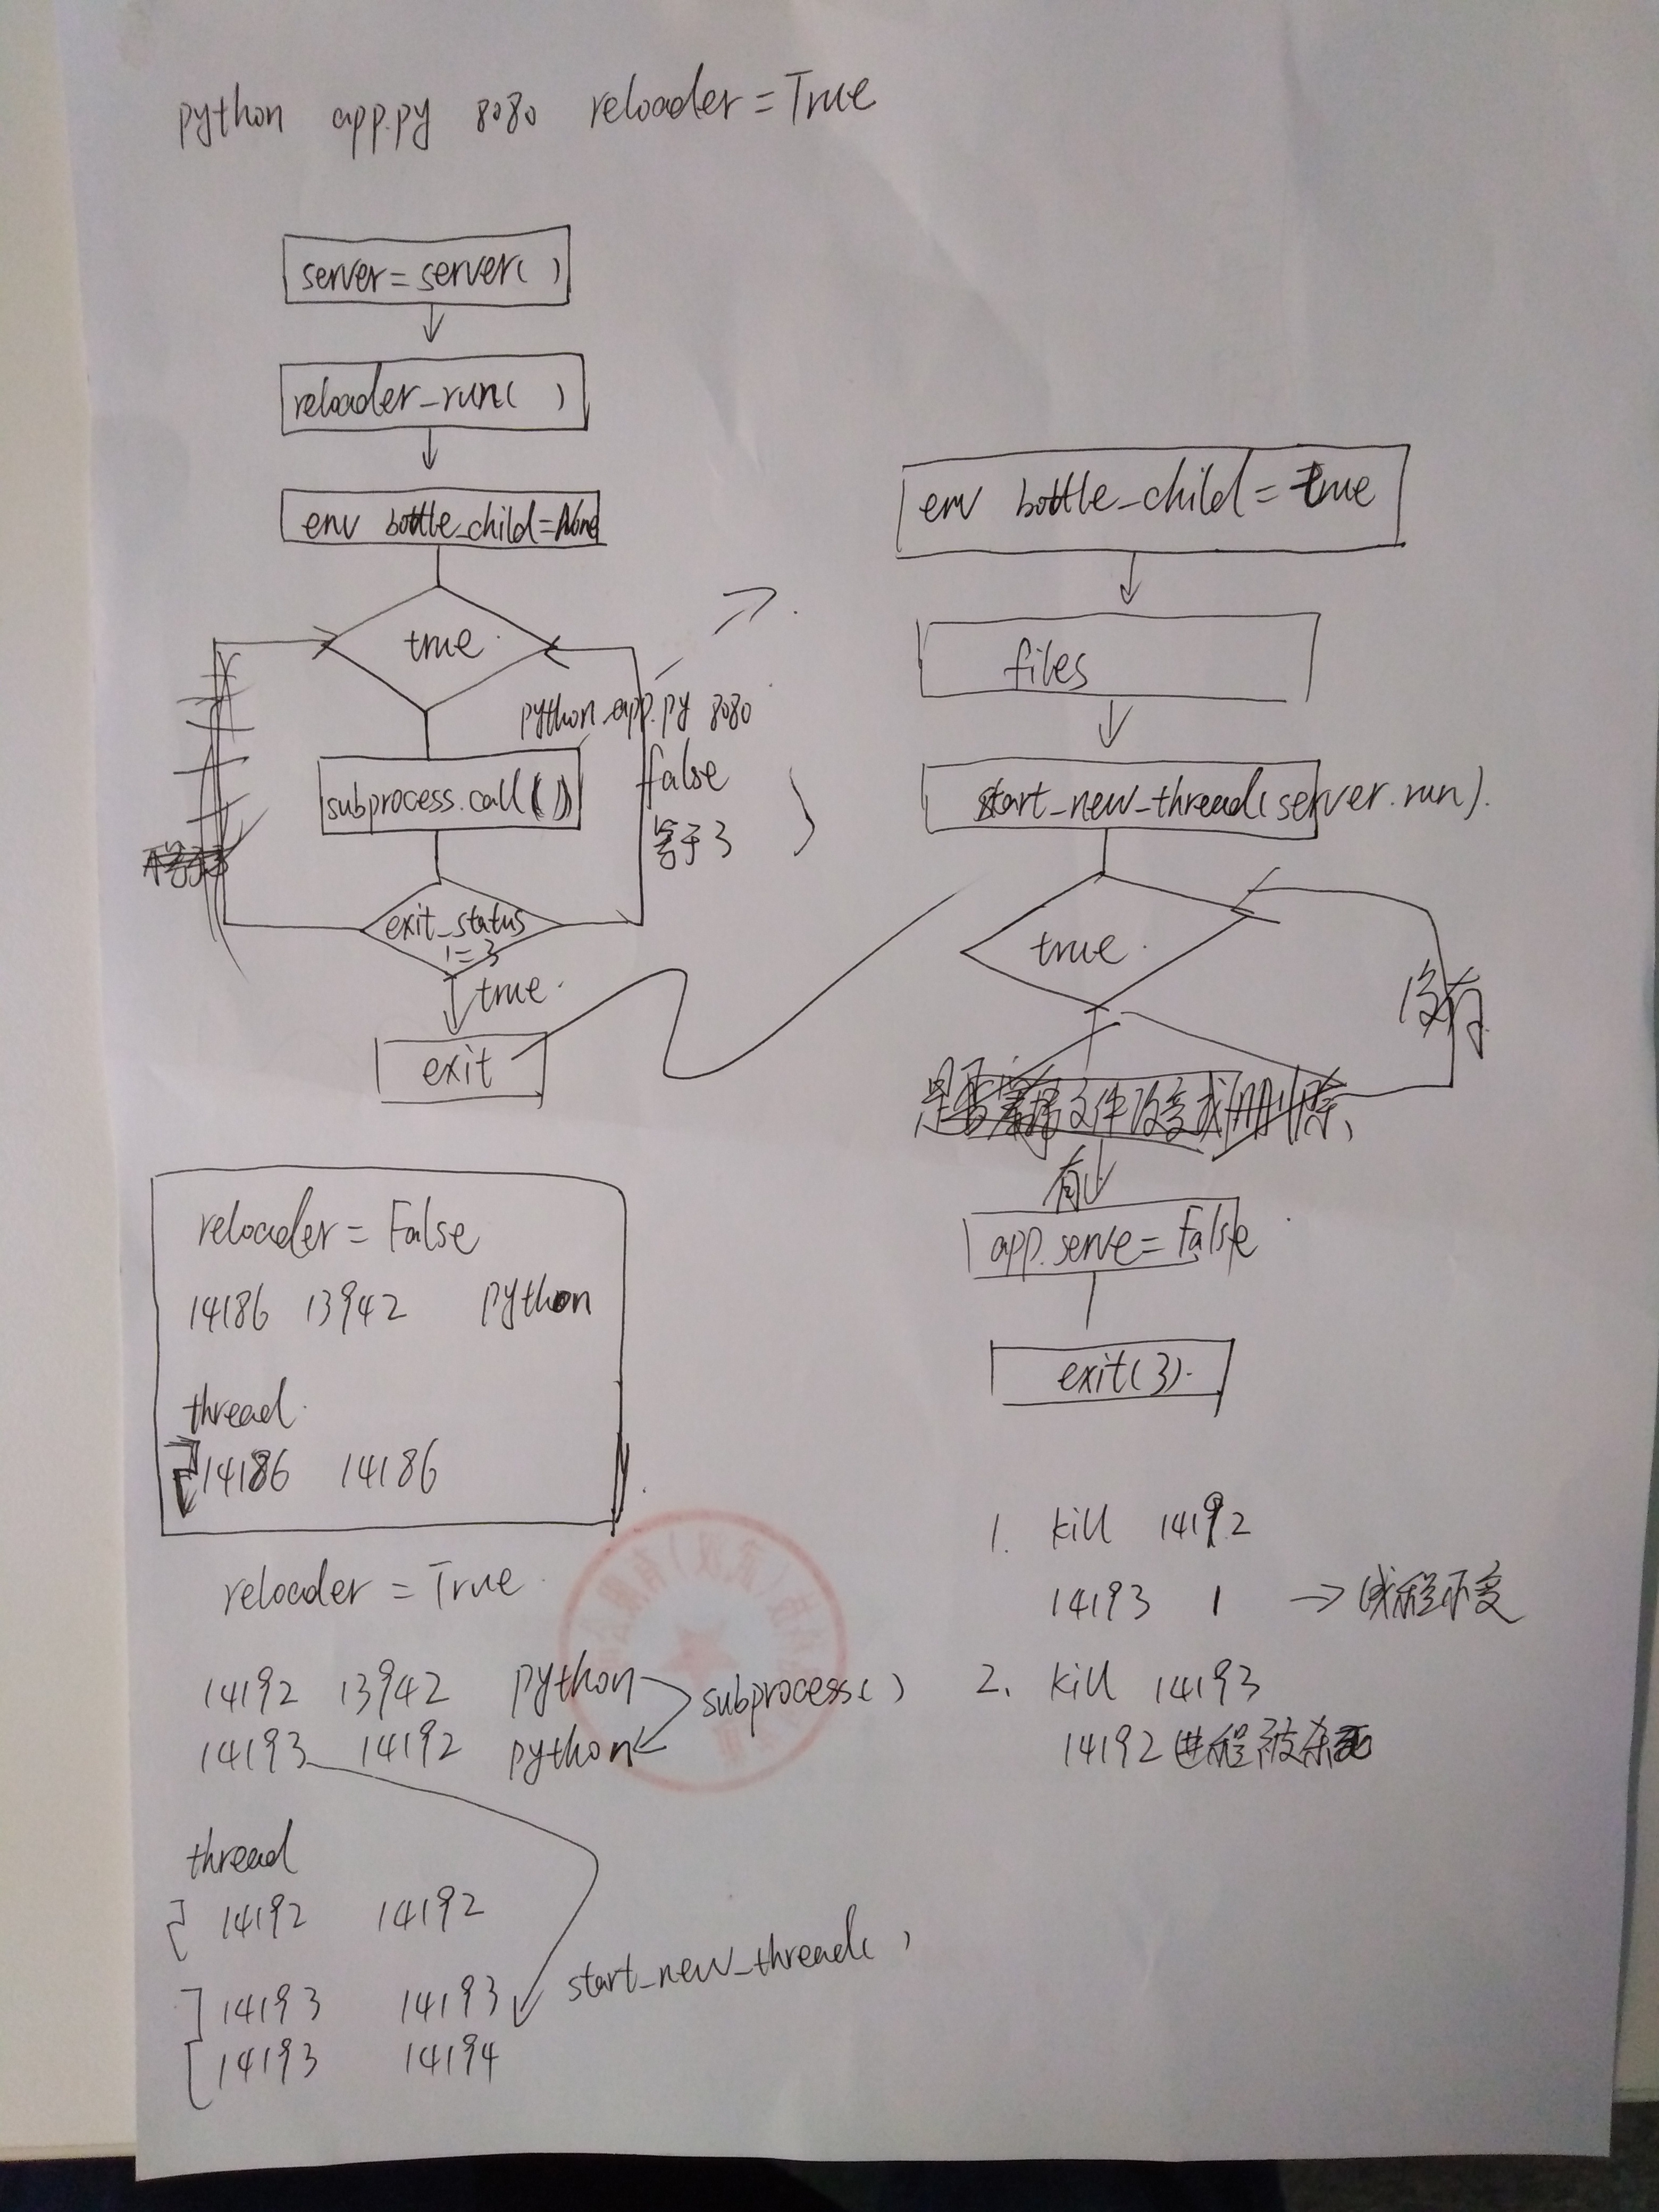 python app.py 8080 reloader=True
server=server( )
reloader_run( )
env bottle_child=None
true
python app.py 8080
subprocess.call( )
false
等于3
exit_status
!=3
true
exit
env bottle_child=true
files
start_new_thread(server.run).
true
没有
是否 文件改变或删除
有
app.serve=False
exit(3).
reloader=False
14186 13942 python
thread
14186 14186
reloader = True
14192 13942 python
14193 14192 python
subprocess( )
thread
14192 14192
14193 14193
14193 14194
start_new_thread( )
1. kill 14192
14193 1 → 线程不变
2. kill 14193
14192进程被杀死